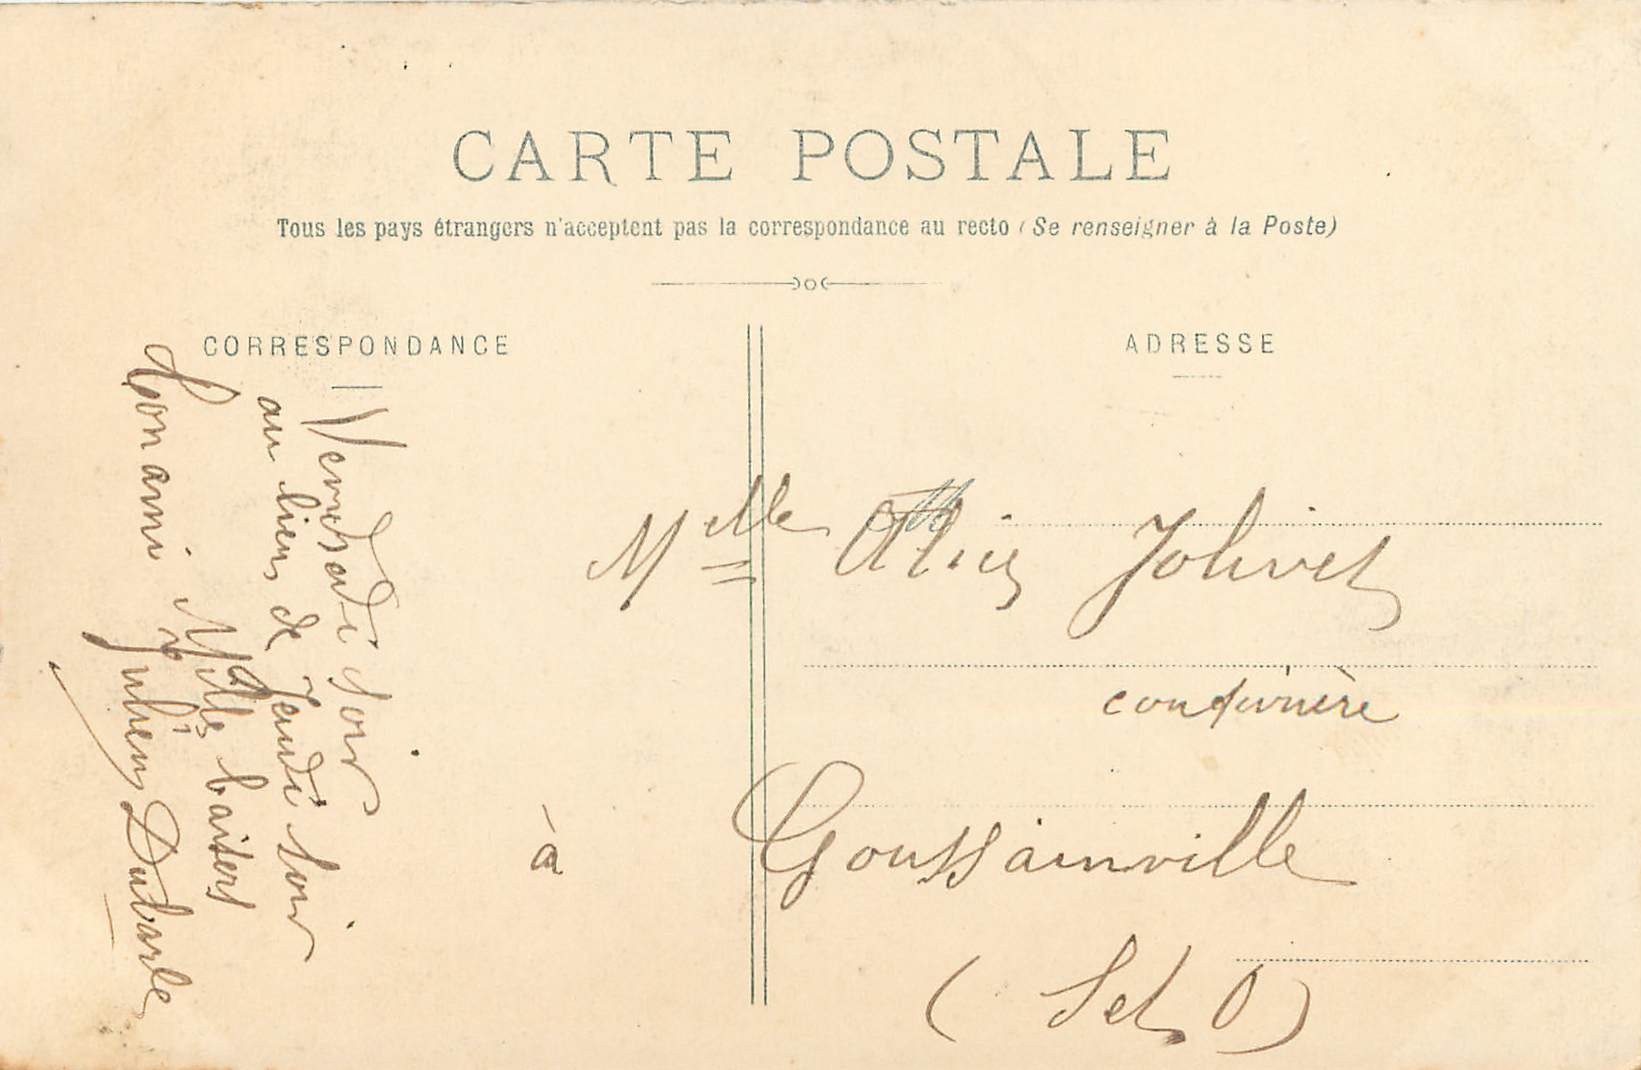 CARTE POSTALE
Tous les pays étrangers n'acceptent pas la correspondance au recto (Se renseigner à la Poste)
CORRESPONDANCE
Vendredi soir
au lieu de Jeudi soir
Mille baisers
Ton ami
Julien Dubarle
ADRESSE
Melle Alice Jolivet
couturière
à Goussainville
(S et O)